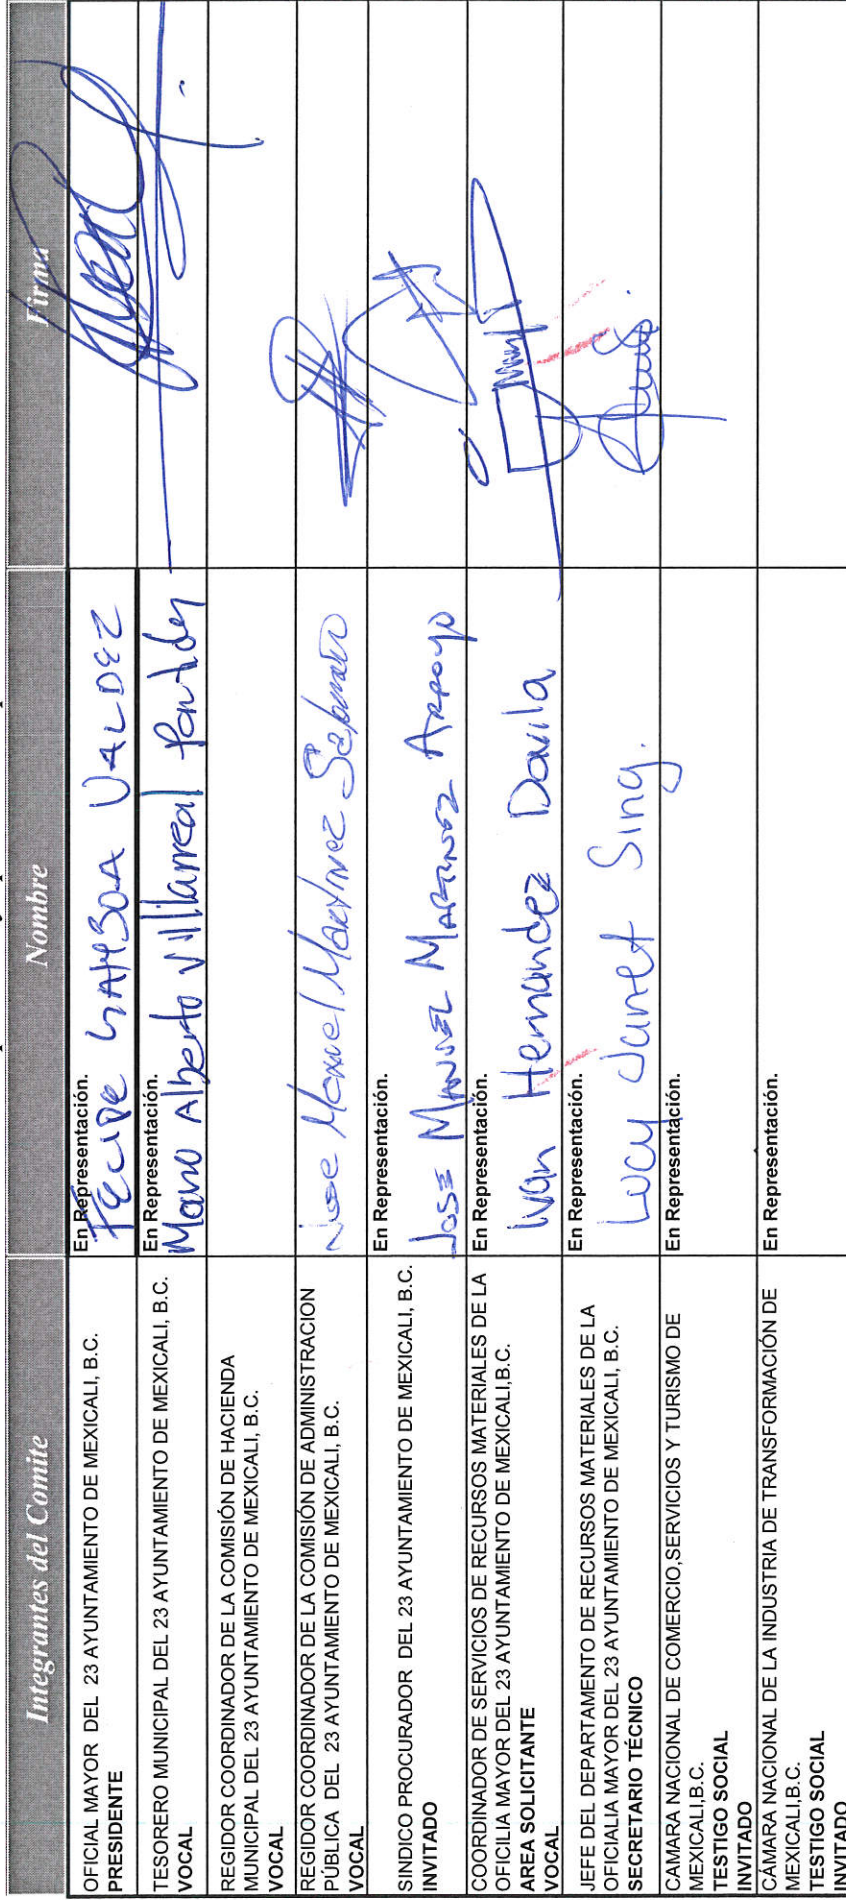 Integrantes del Comite Nombre Firma
OFICIAL MAYOR DEL 23 AYUNTAMIENTO DE MEXICALI, B.C.
PRESIDENTE
En Representación.
Felipe GAMBOA VALDEZ
TESORERO MUNICIPAL DEL 23 AYUNTAMIENTO DE MEXICALI, B.C.
VOCAL
En Representación.
Mario Alberto Villarreal
REGIDOR COORDINADOR DE LA COMISIÓN DE HACIENDA
MUNICIPAL DEL 23 AYUNTAMIENTO DE MEXICALI, B.C.
VOCAL
REGIDOR COORDINADOR DE LA COMISIÓN DE ADMINISTRACION
PÚBLICA DEL 23 AYUNTAMIENTO DE MEXICALI, B.C.
VOCAL
Jose Manuel Martinez
SINDICO PROCURADOR DEL 23 AYUNTAMIENTO DE MEXICALI, B.C.
INVITADO
En Representación.
JOSE MANUEL MARTINEZ ARROYO
COORDINADOR DE SERVICIOS DE RECURSOS MATERIALES DE LA
OFICILIA MAYOR DEL 23 AYUNTAMIENTO DE MEXICALI,B.C.
AREA SOLICITANTE
VOCAL
En Representación.
Ivan Hernandez Davila
JEFE DEL DEPARTAMENTO DE RECURSOS MATERIALES DE LA
OFICIALIA MAYOR DEL 23 AYUNTAMIENTO DE MEXICALI, B.C.
SECRETARIO TÉCNICO
En Representación.
Lucy Janet Sing.
CAMARA NACIONAL DE COMERCIO,SERVICIOS Y TURISMO DE
MEXICALI,B.C.
TESTIGO SOCIAL
INVITADO
En Representación.
CÁMARA NACIONAL DE LA INDUSTRIA DE TRANSFORMACIÓN DE
MEXICALI,B.C.
TESTIGO SOCIAL
INVITADO
En Representación.